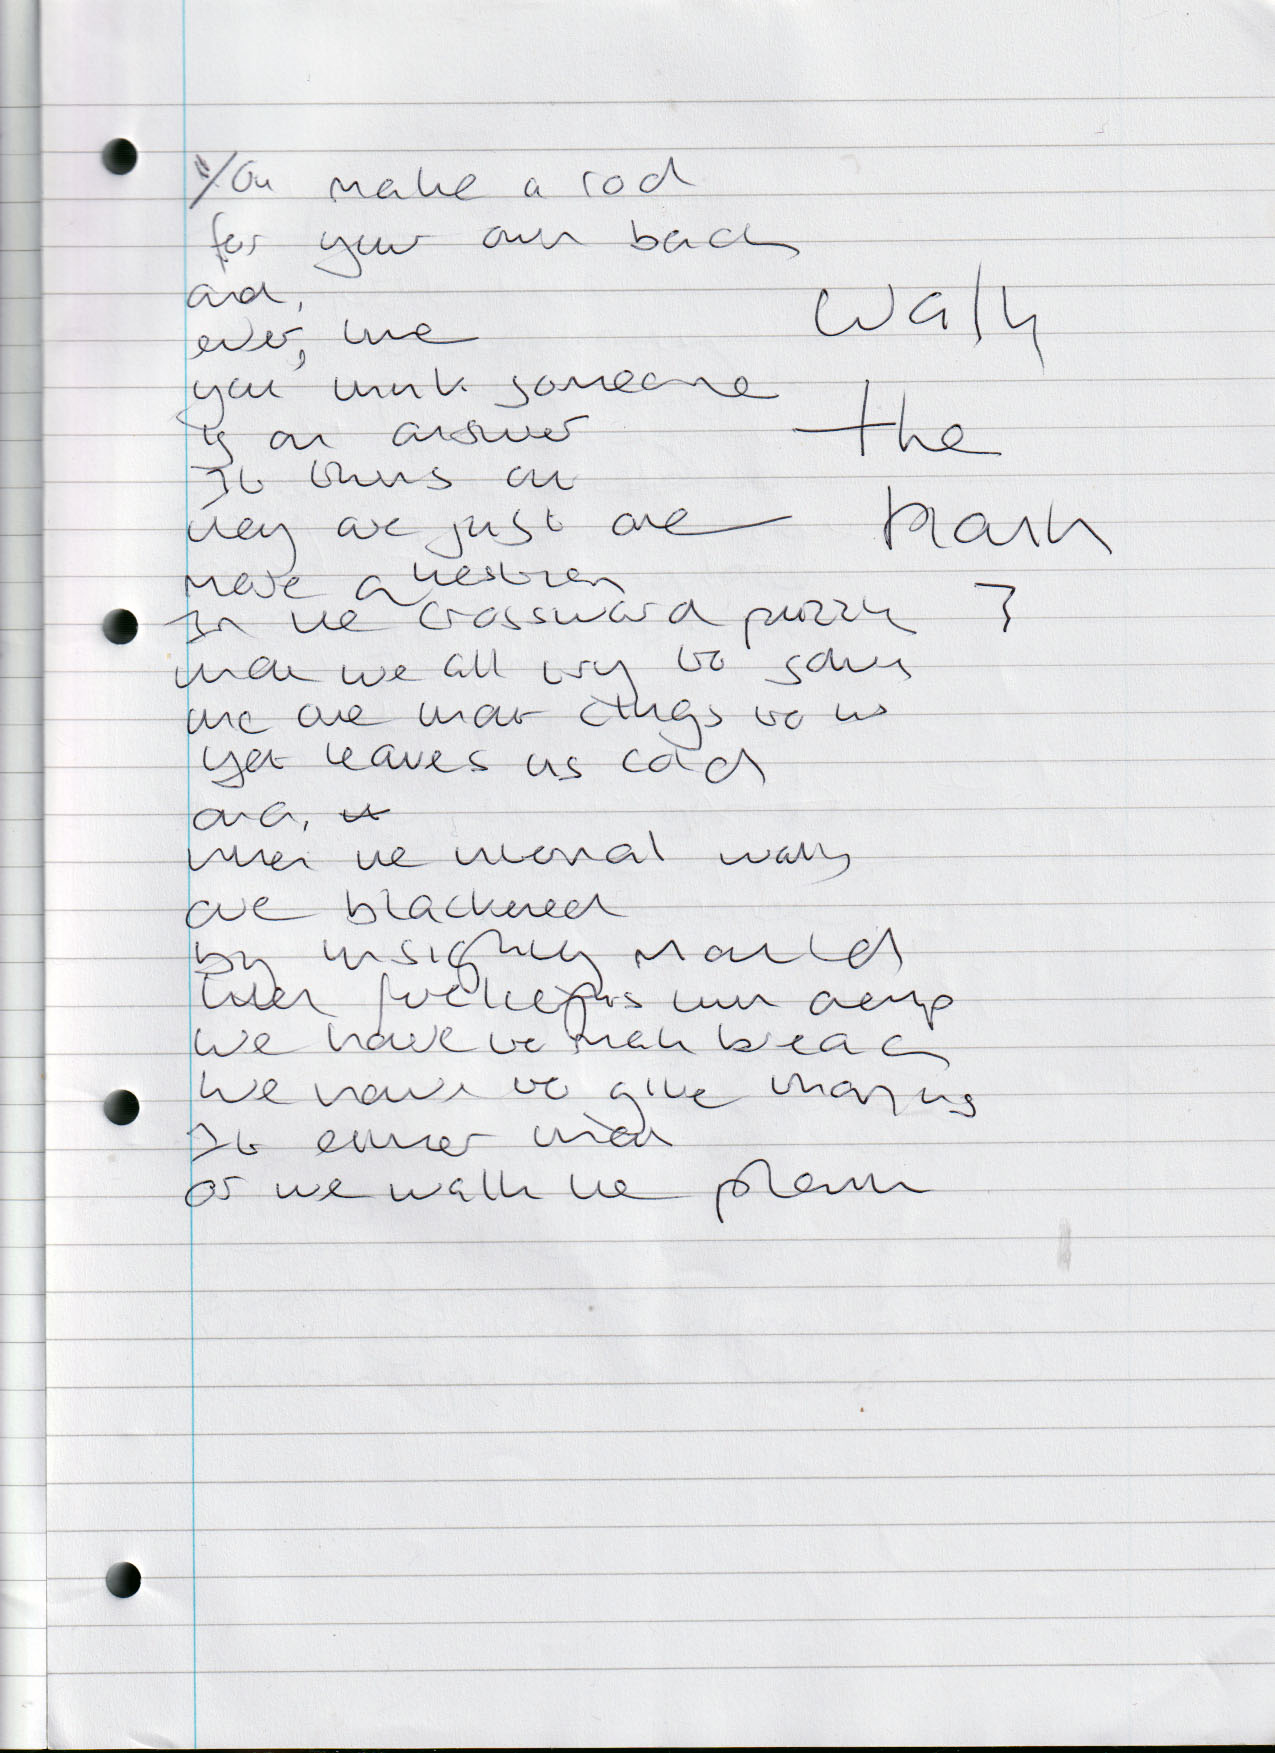 You make a rod
for your own back
and,
every time
you think someone
is an answer
It turns out
they are just one
more question
In the crossword puzzle
that we all try to solve
the one that clings to us
yet leaves us cold
and,
when the internal walls
are blackened
by unsightly mould
then fuck this damp
We have to break
We have to give thanks
It either
or we walk the plank
Walk
the
Plank
7